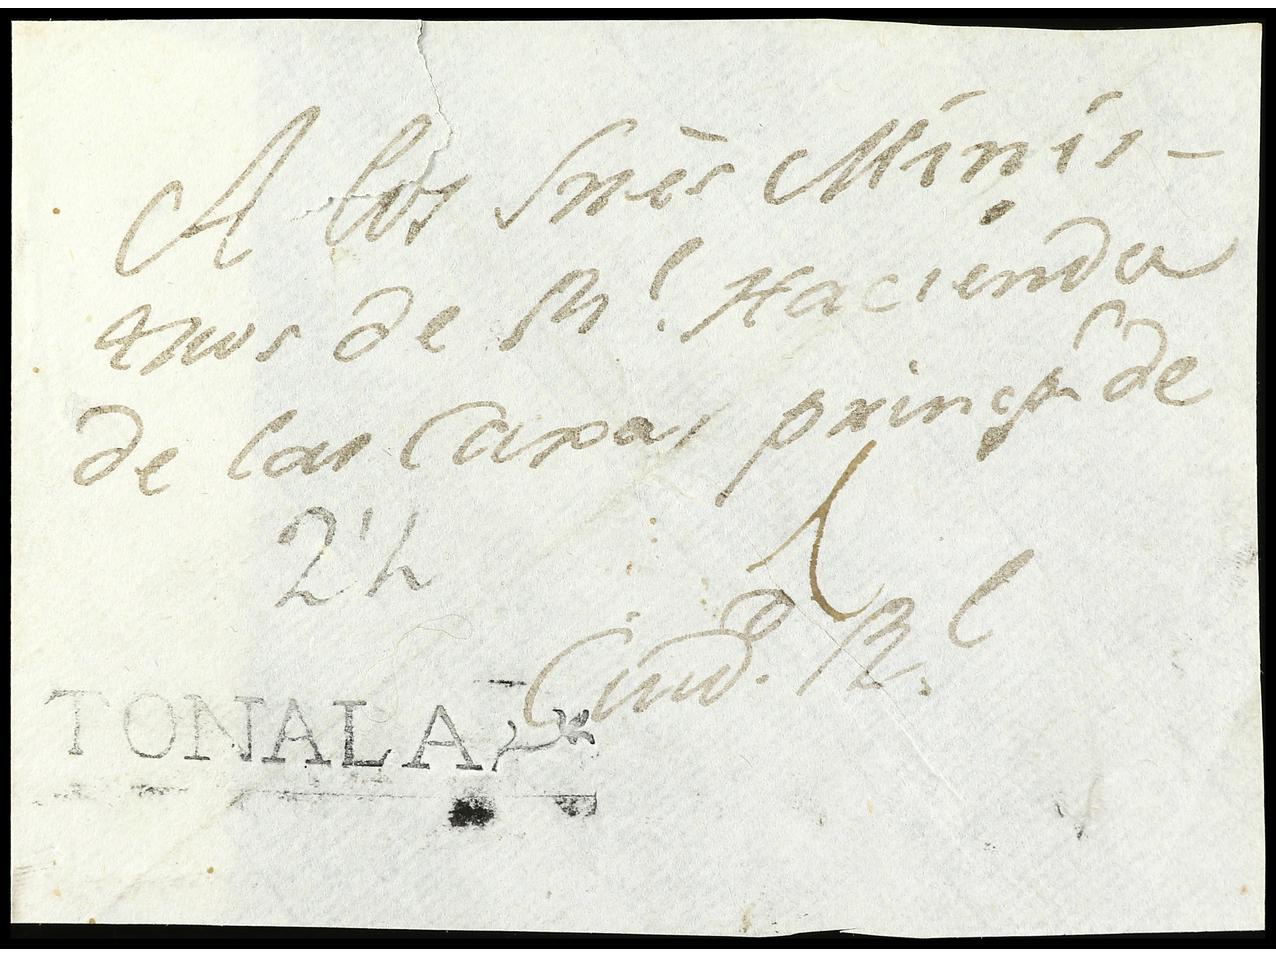 A los Snès Minis-
tros de Rl. Hacienda
de las Caxas princip. de
Ciud. Rl.
TONALA